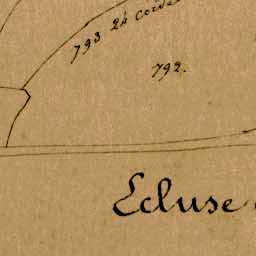 793 2è Corde
792.
Ecluse